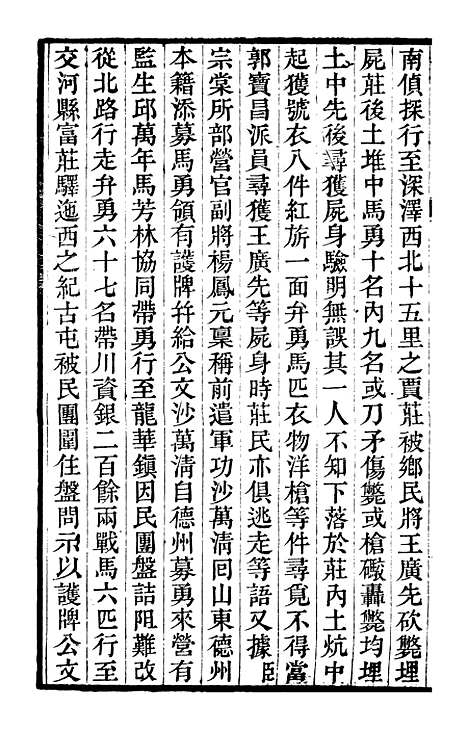 南偵探行至深澤西北十五里之賈莊被鄉民將王廣先砍斃埋
屍莊後土堆中馬勇十名內九名或刀矛傷斃或槍礮轟斃均埋
土中先後尋獲屍身驗明無誤其一人不知下落於莊內土炕中
起獲號衣八件紅旂一面弁勇馬匹衣物洋槍等件尋覓不得當
郭寶昌派員尋獲王廣先等屍身時莊民亦俱逃走等語又據臣
宗棠所部營官副將楊鳳元稟稱前遣軍功沙萬清囘山東德州
本籍添募馬勇領有護牌幷給公文沙萬清自德州募勇來營有
監生邱萬年馬芳林協同帶勇行至龍華鎮因民團盤詰阻難改
從北路行走弁勇六十七名帶川資銀二百餘兩戰馬六匹行至
交河縣富莊驛迤西之紀古屯被民團圍住盤問示以護牌公文